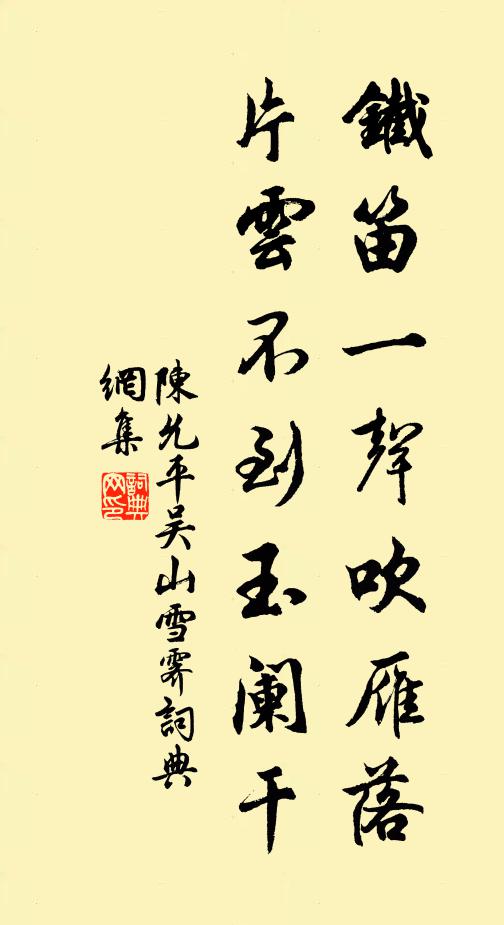 鐵笛一聲吹雁落
片雲不到玉阑干
陳允平吴山雪霽詞典
網集
詞典
网印